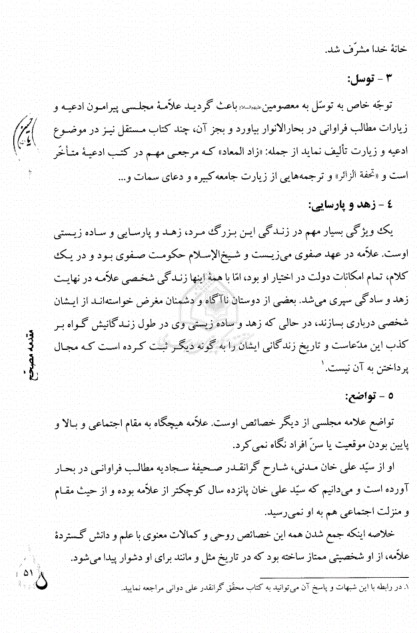 خانهٔ خدا مشرّف شد.
۳ - توسل:
توجّه خاص به توسّل به معصومین باعث گردید علاّمهٔ مجلسی پیرامون ادعیه و
زیارات مطالب فراوانی در بحارالانوار بیاورد و بجز آن، چند کتاب مستقل نیز در موضوع
ادعیه و زیارت تألیف نماید از جمله: «زاد المعاد» که مرجعی مهم در کتب ادعیهٔ متأخّر
است و «تحفة الزائر» و ترجمه‌هایی از زیارت جامعه کبیره و دعای سمات و...
۴ - زهد و پارسایی:
یک ویژگی بسیار مهم در زندگی این بزرگ مرد، زهد و پارسایی و ساده زیستی
اوست. علاّمه در عهد صفوی می‌زیست و شیخ‌الإسلام حکومت صفوی بود و در یک
کلام، تمام امکانات دولت در اختیار او بود، امّا با همهٔ اینها زندگی شخصی علاّمه در نهایت
زهد و سادگی سپری می‌شد. بعضی از دوستان ناآگاه و دشمنان مغرض خواسته‌اند از ایشان
شخصی درباری بسازند، در حالی که زهد و ساده زیستی وی در طول زندگانیش گواه بر
کذب این مدّعاست و تاریخ زندگانی ایشان را به گونه دیگر ثبت کرده است که مجال
پرداختن به آن نیست.۱
۵ - تواضع:
تواضع علامه مجلسی از دیگر خصائص اوست. علاّمه هیچگاه به مقام اجتماعی و بالا و
پایین بودن موقعیت یا سنّ افراد نگاه نمی‌کرد.
او از سیّد علی خان مدنی، شارح گرانقدر صحیفهٔ سجادیه مطالب فراوانی در بحار
آورده است و می‌دانیم که سیّد علی خان پانزده سال کوچکتر از علاّمه بوده و از حیث مقام
و منزلت اجتماعی هم به او نمی‌رسید.
خلاصه اینکه جمع شدن همه این خصائص روحی و کمالات معنوی با علم و دانش گستردهٔ
علاّمه، از او شخصیتی ممتاز ساخته بود که در تاریخ مثل و مانند برای او دشوار پیدا می‌شود.
۱. در رابطه با این شبهات و پاسخ آن می‌توانید به کتاب محقّق گرانقدر علی دوانی مراجعه نمایید.
مقدمه مصحّح
۵۱